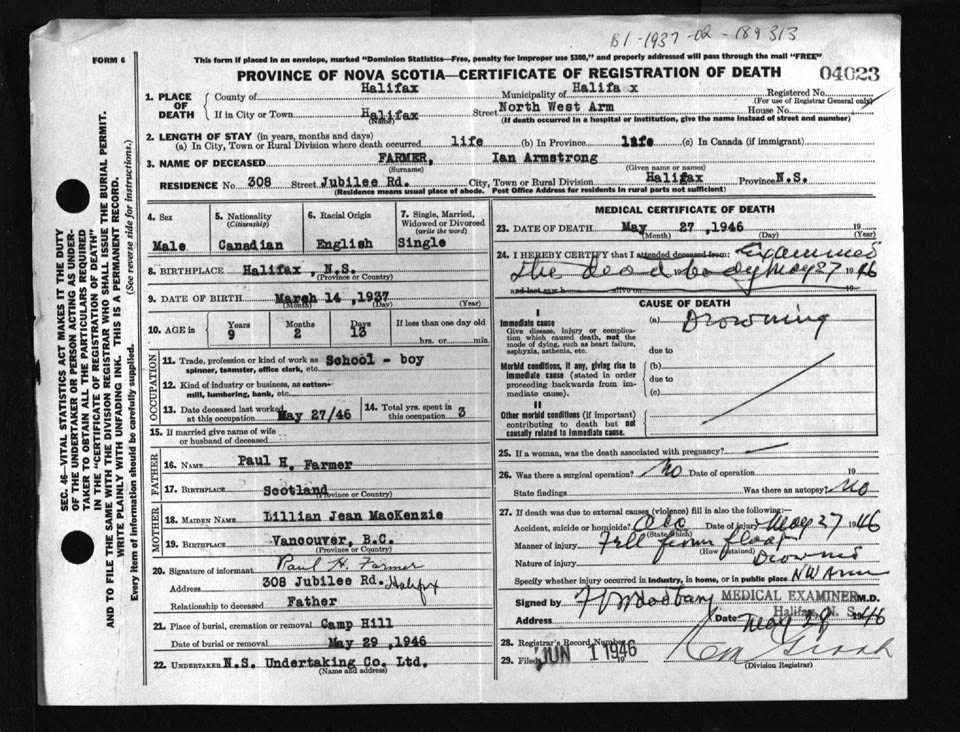 B1-1937-02-189313
FORM 6
This form if placed in an envelope, marked "Dominion Statistics—Free, penalty for improper use $300," and properly addressed will pass through the mail "FREE"
PROVINCE OF NOVA SCOTIA—CERTIFICATE OF REGISTRATION OF DEATH 04023
1. PLACE OF DEATH
County of Halifax Municipality of Halifa x Registered No.
(For use of Registrar General only)
If in City or Town Halifax (Name) Street North West Arm House No.
(If death occurred in a hospital or institution, give the name instead of street and number)
2. LENGTH OF STAY (in years, months and days)
(a) In City, Town or Rural Division where death occurred life (b) In Province life (c) In Canada (if immigrant)
3. NAME OF DECEASED FARMER, Ian Armstrong
(Surname) (Given name or names)
RESIDENCE No. 308 Street Jubilee Rd. City, Town or Rural Division Halifax Province N.S.
(Residence means usual place of abode. Post Office Address for residents in rural parts not sufficient)
4. Sex
Male
5. Nationality
(Citizenship)
Canadian
6. Racial Origin
English
7. Single, Married,
Widowed or Divorced
(write the word)
Single
8. BIRTHPLACE Halifax, N.S.
(Province or Country)
9. DATE OF BIRTH March 14, 1937
(Month) (Day) (Year)
10. AGE in
Years Months Days If less than one day old
9 2 13 hrs. or min.
OCCUPATION
11. Trade, profession or kind of work as School - boy
spinner, teamster, office clerk, etc.
12. Kind of industry or business, as cotton-
mill, lumbering, bank, etc.
13. Date deceased last worked
at this occupation May 27/46
14. Total yrs. spent in
this occupation 3
15. If married give name of wife
or husband of deceased
FATHER
16. NAME Paul H. Farmer
17. BIRTHPLACE Scotland
(Province or Country)
MOTHER
18. MAIDEN NAME Lillian Jean MacKenzie
19. BIRTHPLACE Vancouver, B.C.
(Province or Country)
20. Signature of informant Paul H. Farmer
Address 308 Jubilee Rd. Halifx
Relationship to deceased Father
21. Place of burial, cremation or removal Camp Hill
Date of burial or removal May 29, 1946
22. UNDERTAKER N.S. Undertaking Co. Ltd.
(Name and address)
MEDICAL CERTIFICATE OF DEATH
23. DATE OF DEATH May 27, 1946 19
(Month) (Day) (Year)
24. I HEREBY CERTIFY that I attended deceased from: Examined
the dead body May 27 1946
and last saw h alive on 19
CAUSE OF DEATH
I
Immediate cause
Give disease, injury or complica-
tion which caused death, not the
mode of dying, such as heart failure,
asphyxia, asthenia, etc.
(a) Drowning
due to
Morbid conditions, if any, giving rise to
immediate cause (stated in order
proceeding backwards from im-
mediate cause).
(b)
due to
(c)
II
Other morbid conditions (if important)
contributing to death but not
causally related to immediate cause.
25. If a woman, was the death associated with pregnancy?
26. Was there a surgical operation? No Date of operation 19
State findings Was there an autopsy? No
27. If death was due to external causes (violence) fill in also the following:—
Accident, suicide or homicide? Acc Date of injury May 27 1946
(State which)
Manner of injury Fell from float
(How sustained)
Nature of injury Drowned
Specify whether injury occurred in industry, in home, or in public place NW Arm
Signed by MEDICAL EXAMINER M.D.
Halifax, N. S.
Date May 29 1946
28. Registrar's Record Number
29. Filed JUN 1 1946
(Division Registrar)
SEC. 46—VITAL STATISTICS ACT MAKES IT THE DUTY
OF THE UNDERTAKER OR PERSON ACTING AS UNDER-
TAKER TO OBTAIN ALL THE PARTICULARS REQUIRED
IN THE "CERTIFICATE OF REGISTRATION OF DEATH"
AND TO FILE THE SAME WITH THE DIVISION REGISTRAR WHO SHALL ISSUE THE BURIAL PERMIT.
WRITE PLAINLY WITH UNFADING INK. THIS IS A PERMANENT RECORD.
Every item of information should be carefully supplied. (See reverse side for instructions.)